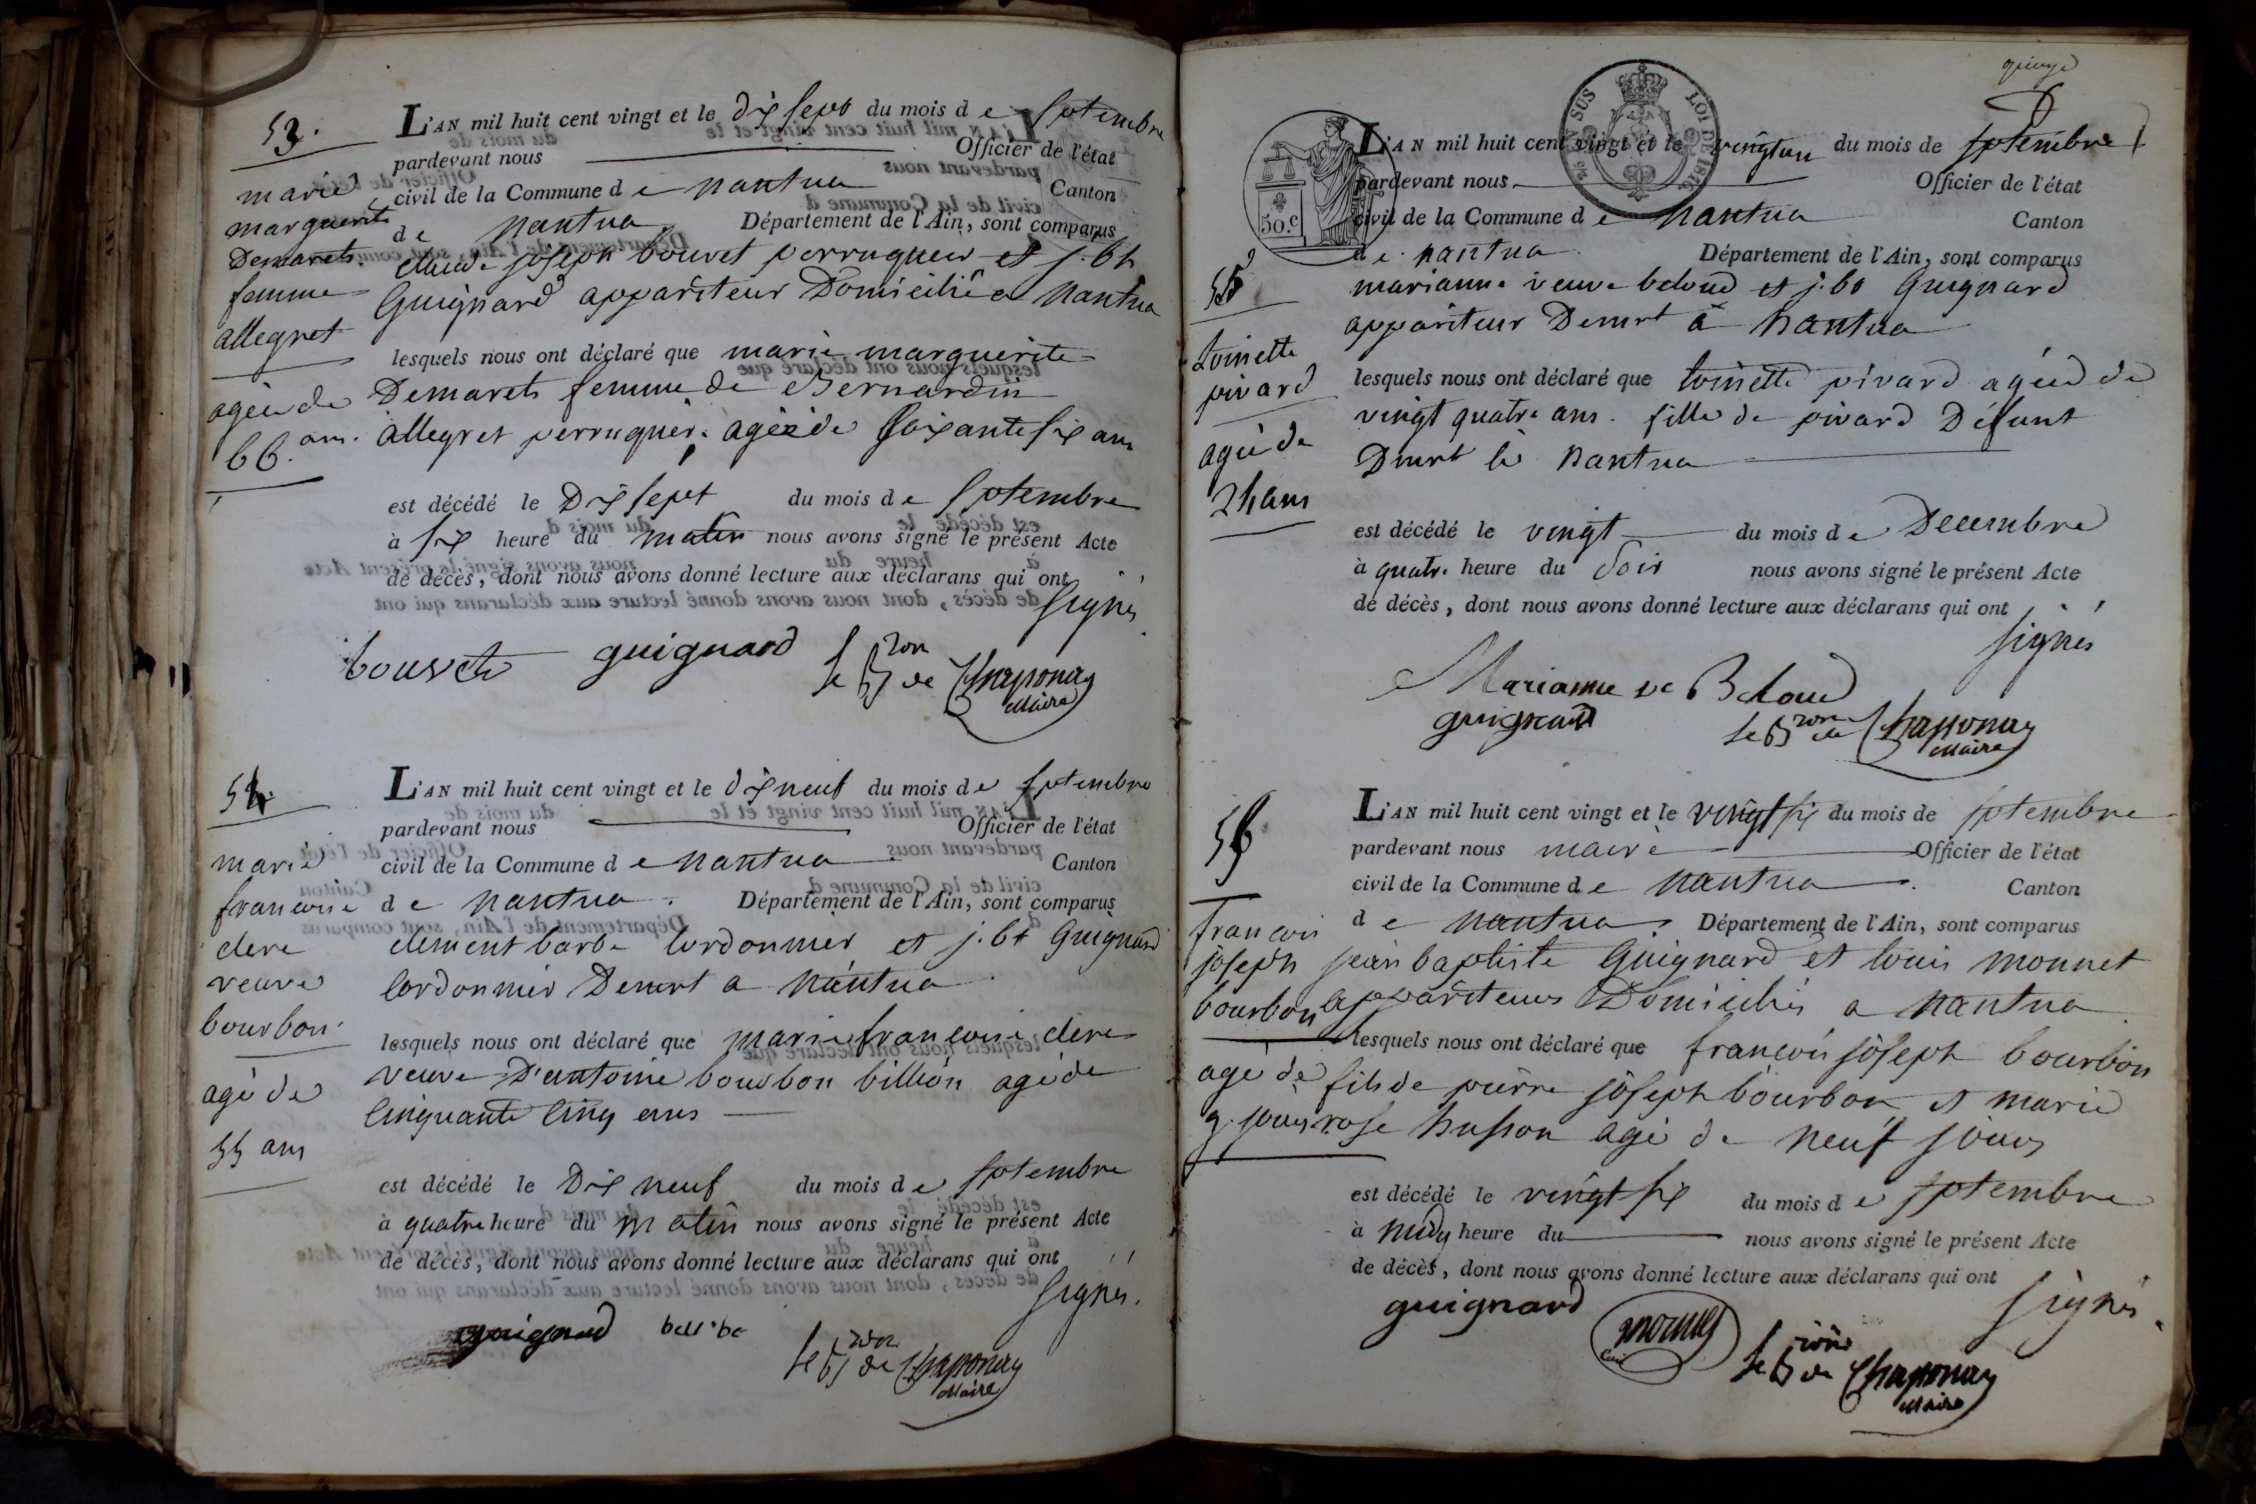 53.
marie
marguerite
Demarets
femme
allegret
agée de
66. ans.
L'AN mil huit cent vingt et le dix sept du mois de septembre
pardevant nous Officier de l'état
civil de la Commune de nantua Canton
de nantua Département de l'Ain, sont comparus
claude joseph bouvet perruquier et j. bt
Guignard appariteur Domiciliés a nantua
lesquels nous ont déclaré que marie marguerite
Demarets femme de Bernardin
allegret perruquier. agée de soixante six ans
est décédé le Dix sept du mois de septembre
à six heure du matin nous avons signé le présent Acte
de décès, dont nous avons donné lecture aux déclarans qui ont
signés
bouvet guignard le Bron de Chaponay
Maire
54.
marie
francoise
clere
veuve
bourbon
agé de
55 ans
L'AN mil huit cent vingt et le dix neuf du mois de septembre
pardevant nous Officier de l'état
civil de la Commune de nantua Canton
de nantua. Département de l'Ain, sont comparus
clement barbe cordonnier et j. bt Guignard
cordonnier Demrt a nantua
lesquels nous ont déclaré que marie francoise clere
veuve D'antoine bourbon billion agé de
cinquante cinq ans
est décédé le Dix neuf du mois de septembre
à quatre heure du matin nous avons signé le présent Acte
de décès, dont nous avons donné lecture aux déclarans qui ont
signés.
guignard le Bron de Chaponay
Maire
L'AN mil huit cent vingt et le vingt un du mois de septembre
50.c
LOI DE 1816
pardevant nous Officier de l'état
civil de la Commune de nantua Canton
de nantua. Département de l'Ain, sont comparus
55
toinette
pivard
agée de
24 ans
marianne veuve beloud et j. bt Guignard
appariteur Demrt à nantua
lesquels nous ont déclaré que toinette pivard agée de
vingt quatre ans. fille de pivard Défunt
Dmrt à nantua
est décédé le vingt du mois de Decembre
à quatre heure du soir nous avons signé le présent Acte
de décès, dont nous avons donné lecture aux déclarans qui ont
signés
Marianne ve Beloud
guignard le Bron de Chaponay
Maire
56
francois
joseph
bourbon
agé de
9. jours
L'AN mil huit cent vingt et le vingt six du mois de septembre
pardevant nous maire Officier de l'état
civil de la Commune de nantua. Canton
de nantua. Département de l'Ain, sont comparus
jean baptiste Guignard et louis monnet
appariteurs Domiciliés a nantua
lesquels nous ont déclaré que francois joseph bourbon
fils de pierre joseph bourbon et marie
rose husson agé de neuf jours
est décédé le vingt six du mois de septembre
à midy heure du nous avons signé le présent Acte
de décès, dont nous avons donné lecture aux déclarans qui ont
signés
guignard monnet
le Bron de Chaponay
Maire